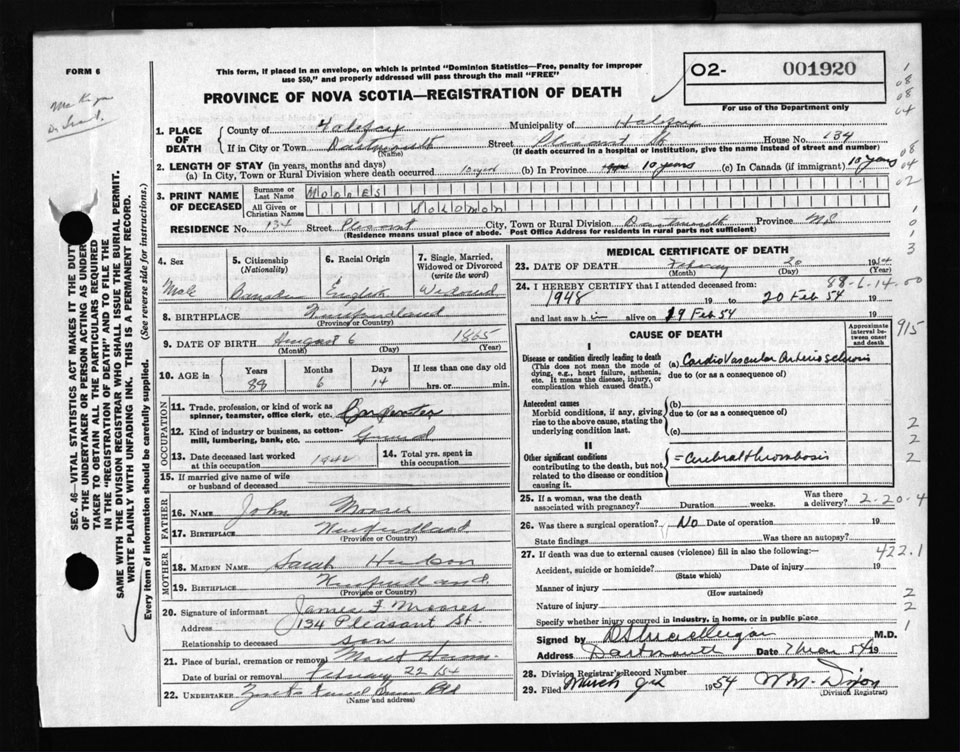 FORM 6
This form, if placed in an envelope, on which is printed "Dominion Statistics—Free, penalty for improper
use $50," and properly addressed will pass through the mail "FREE"
02- 001920
For use of the Department only
PROVINCE OF NOVA SCOTIA—REGISTRATION OF DEATH
SEC. 46—VITAL STATISTICS ACT MAKES IT THE DUTY
OF THE UNDERTAKER OR PERSON ACTING AS UNDER-
TAKER TO OBTAIN ALL THE PARTICULARS REQUIRED
IN THE "REGISTRATION OF DEATH" AND TO FILE THE
SAME WITH THE DIVISION REGISTRAR WHO SHALL ISSUE THE BURIAL PERMIT.
WRITE PLAINLY WITH UNFADING INK. THIS IS A PERMANENT RECORD.
Every item of information should be carefully supplied. (See reverse side for instructions.)
1. PLACE OF DEATH
County of Halifax Municipality of Halifax
If in City or Town Dartmouth Street Pleasant St House No. 134
(Name) (If death occurred in a hospital or institution, give the name instead of street and number)
2. LENGTH OF STAY (in years, months and days)
(a) In City, Town or Rural Division where death occurred 10 years (b) In Province 10 years (c) In Canada (if immigrant) 10 years
3. PRINT NAME OF DECEASED
Surname or Last Name MOORES
All Given or Christian Names SOLOMON
RESIDENCE No. 134 Street Pleasant City, Town or Rural Division Dartmouth Province N.S.
(Residence means usual place of abode. Post Office Address for residents in rural parts not sufficient)
4. Sex Male
5. Citizenship (Nationality) Canadian
6. Racial Origin English
7. Single, Married, Widowed or Divorced (write the word) Widowed
8. BIRTHPLACE Newfoundland
(Province or Country)
9. DATE OF BIRTH August 6 1865
(Month) (Day) (Year)
10. AGE in Years 88 Months 6 Days 14 If less than one day old hrs. or min.
OCCUPATION
11. Trade, profession, or kind of work as spinner, teamster, office clerk, etc. Carpenter
12. Kind of industry or business, as cotton-mill, lumbering, bank, etc. General
13. Date deceased last worked at this occupation 1942
14. Total yrs. spent in this occupation
15. If married give name of wife or husband of deceased
FATHER
16. NAME John Moores
17. BIRTHPLACE Newfoundland
(Province or Country)
MOTHER
18. MAIDEN NAME Sarah
19. BIRTHPLACE Newfoundland
(Province or Country)
20. Signature of informant James F Moores
Address 134 Pleasant St.
Relationship to deceased son
21. Place of burial, cremation or removal Mount Hermon
Date of burial or removal February 22 1954
22. UNDERTAKER
(Name and address)
MEDICAL CERTIFICATE OF DEATH
23. DATE OF DEATH February 20 1954
(Month) (Day) (Year)
88-6-14-00
24. I HEREBY CERTIFY that I attended deceased from:
1948 19 to 20 Feb 54 19
and last saw h im alive on 19 Feb 54 19
915
CAUSE OF DEATH
Approximate interval between onset and death
I
Disease or condition directly leading to death
(This does not mean the mode of dying, e.g., heart failure, asthenia, etc. It means the disease, injury, or complication which caused death.)
(a) Cardio Vascular Arteriosclerosis
due to (or as a consequence of)
Antecedent causes
Morbid conditions, if any, giving rise to the above cause, stating the underlying condition last.
(b)
due to (or as a consequence of)
(c)
II
Other significant conditions
contributing to the death, but not related to the disease or condition causing it.
= Cerebral thrombosis
25. If a woman, was the death associated with pregnancy? Duration weeks. Was there a delivery?
2-20-4
26. Was there a surgical operation? No Date of operation 19
State findings Was there an autopsy?
27. If death was due to external causes (violence) fill in also the following:—
422.1
Accident, suicide or homicide? Date of injury 19
(State which)
Manner of injury
(How sustained)
Nature of injury
Specify whether injury occurred in industry, in home, or in public place
Signed by M.D.
Address Dartmouth Date 7 Mar 54 19
28. Division Registrar's Record Number
29. Filed March 9th 1954 W M Dixon
(Division Registrar)